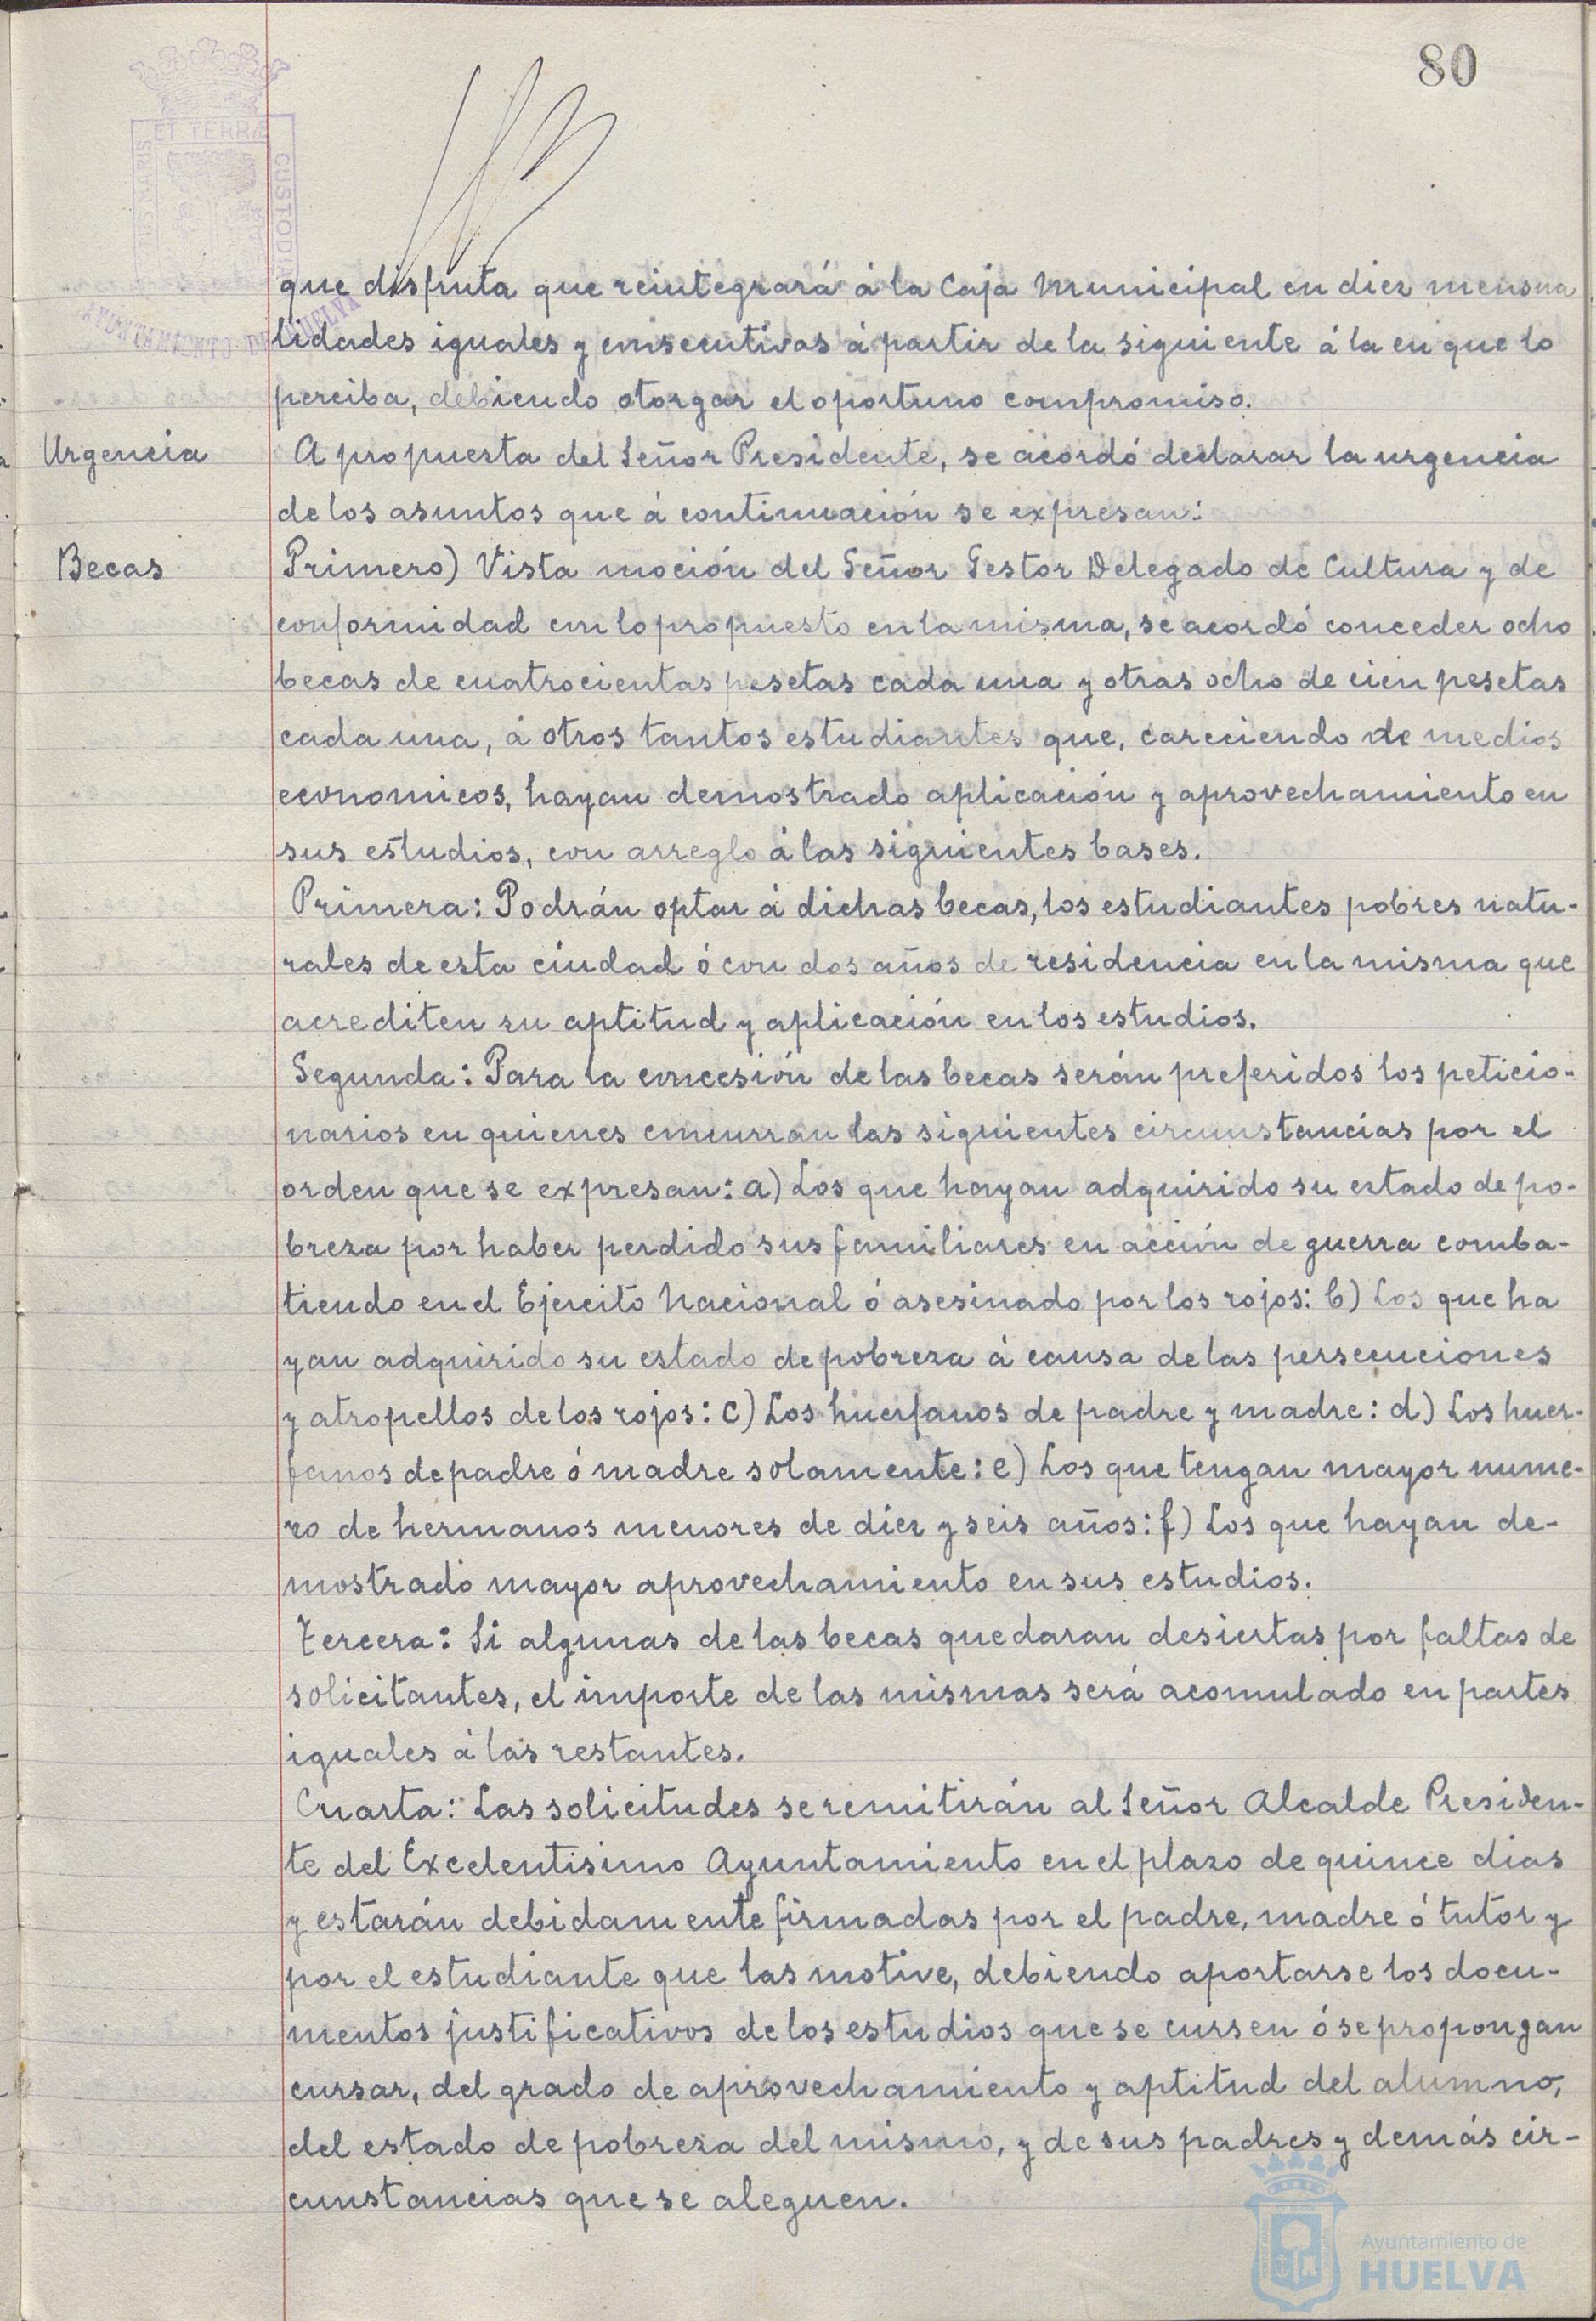 80
ET TERRÆ
CUSTODIA
PORTUS MARIS
AYUNTAMIENTO DE HUELVA
que disfruta que reintegrará á la Caja Municipal en diez mensua
lidades iguales y consecutivas á partir de la siguiente á la en que lo
perciba, debiendo otorgar el oportuno compromiso.
Urgencia
A propuesta del Señor Presidente, se acordó declarar la urgencia
de los asuntos que á continuación se expresan:
Becas
Primero) Vista moción del Señor Gestor Delegado de Cultura y de
conformidad con lo propuesto en la misma, se acordó conceder ocho
becas de cuatrocientas pesetas cada una y otras ocho de cien pesetas
cada una, á otros tantos estudiantes que, careciendo de medios
economicos, hayan demostrado aplicación y aprovechamiento en
sus estudios, con arreglo á las siguientes bases.
Primera: Podrán optar á dichas becas, los estudiantes pobres natu-
rales de esta ciudad ó con dos años de residencia en la misma que
acrediten su aptitud y aplicación en los estudios.
Segunda: Para la concesión de las becas serán preferidos los peticio-
narios en quienes concurran las siguientes circunstancias por el
orden que se expresan: a) Los que hayan adquirido su estado de po-
breza por haber perdido sus familiares en acción de guerra comba-
tiendo en el Ejercito Nacional ó asesinado por los rojos: b) Los que ha
yan adquirido su estado de pobreza á causa de las persecuciones
y atropellos de los rojos: c) Los huerfanos de padre y madre: d) Los huer-
fanos de padre ó madre solamente: e) Los que tengan mayor nume-
ro de hermanos menores de diez y seis años: f) Los que hayan de-
mostrado mayor aprovechamiento en sus estudios.
Tercera: Si algunas de las becas quedaran desiertas por faltas de
solicitantes, el importe de las mismas será acomulado en partes
iguales á las restantes.
Cuarta: Las solicitudes se remitirán al Señor Alcalde Presiden-
te del Excelentisimo Ayuntamiento en el plazo de quince dias
y estarán debidamente firmadas por el padre, madre ó tutor y
por el estudiante que las motive, debiendo aportarse los docu-
mentos justificativos de los estudios que se cursen ó se propongan
cursar, del grado de aprovechamiento y aptitud del alumno,
del estado de pobreza del mismo, y de sus padres y demás cir-
cunstancias que se aleguen.
Ayuntamiento de
HUELVA